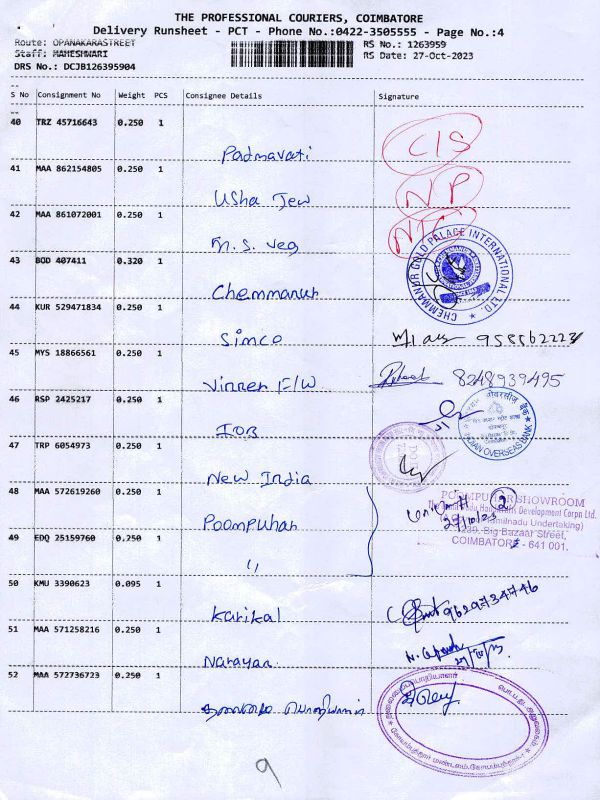 THE PROFESSIONAL COURIERS, COIMBATORE
Delivery Runsheet - PCT - Phone No.:0422-3505555 - Page No.:4
Route: OPANAKARASTREET
RS No.: 1263959
Staff: MAHESHWARI
RS Date: 27-Oct-2023
DRS No.: DCJB126395904
S No Consignment No Weight PCS Consignee Details Signature
40 TRZ 45716643 0.250 1
Padmavati C/S
41 MAA 862154805 0.250 1
Usha Jew NP
42 MAA 861072001 0.250 1
M.S. Veg
43 BOD 407411 0.320 1
Chemmanur
CHEMMANUR GOLD PALACE INTERNATIONAL LTD.
44 KUR 529471834 0.250 1
Simco
45 MYS 18866561 0.250 1
F/W 8248939495
46 RSP 2425217 0.250 1
IOB
INDIAN OVERSEAS BANK
47 TRP 6054973 0.250 1
New India
48 MAA 572619260 0.250 1
Poompuhar
2
POOMPUHAR SHOWROOM
Development Corpn Ltd.
Tamilnadu Undertaking)
Big Bazaar Street,
COIMBATORE - 641 001.
49 EDQ 25159760 0.250 1
"
50 KMU 3390623 0.095 1
Karikal 9629734746
51 MAA 571258216 0.250 1
Narayan
52 MAA 572736723 0.250 1
தலைமை பொறியாளர்
9